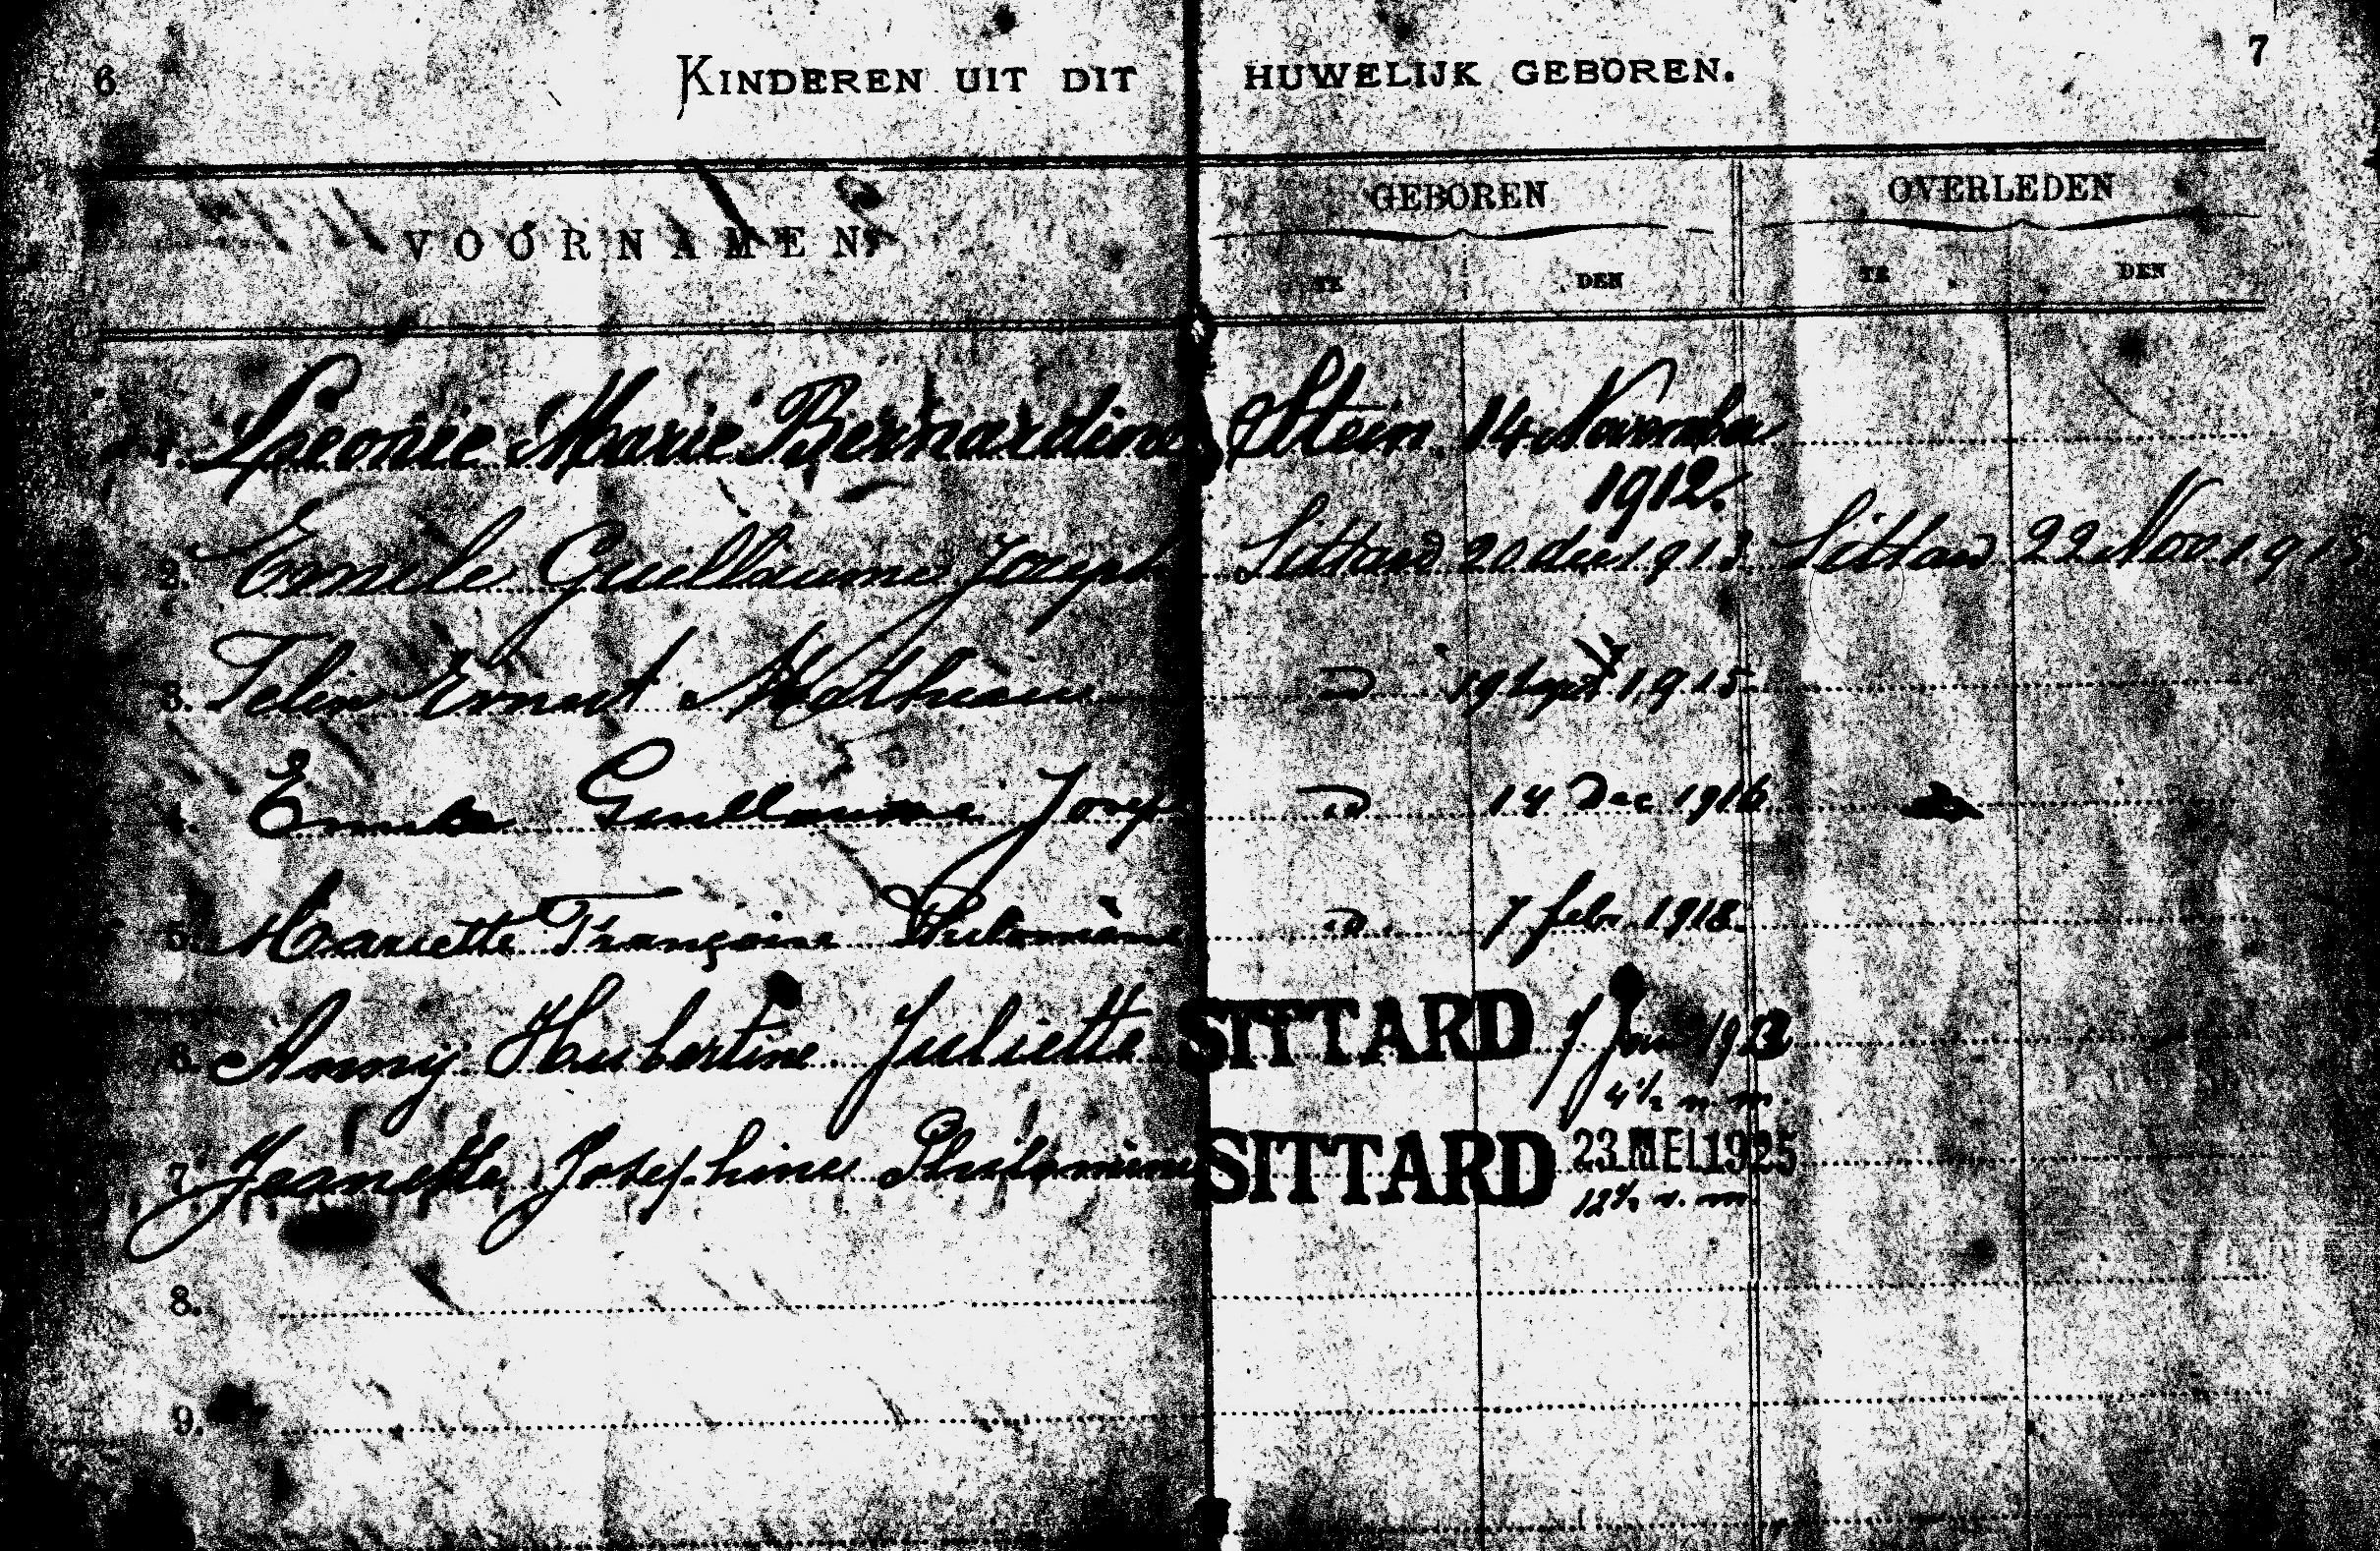 6 KINDEREN UIT DIT HUWELIJK GEBOREN. 7
VOORNAMEN GEBOREN OVERLEDEN
TE DEN TE DEN
1. Leonie Marie Bernardine Stein 14 November
1912.
2. Emile Guillaume Joseph Sittard 20 dec 1913 Sittard 22 Nov 191
3. Felix Ernest Mathieu D 19 Sept 1915
4. Emile Guillaume Josep D 14 Dec 1916
5. Mariette Françoise Philomène D 7 febr. 1918.
6. Anny Hubertine Juliette SITTARD 7 Jan
4½ n. m.
7. Jeanette Josephine Philomène SITTARD 23 MEI 1925
12½ n. m.
8.
9.